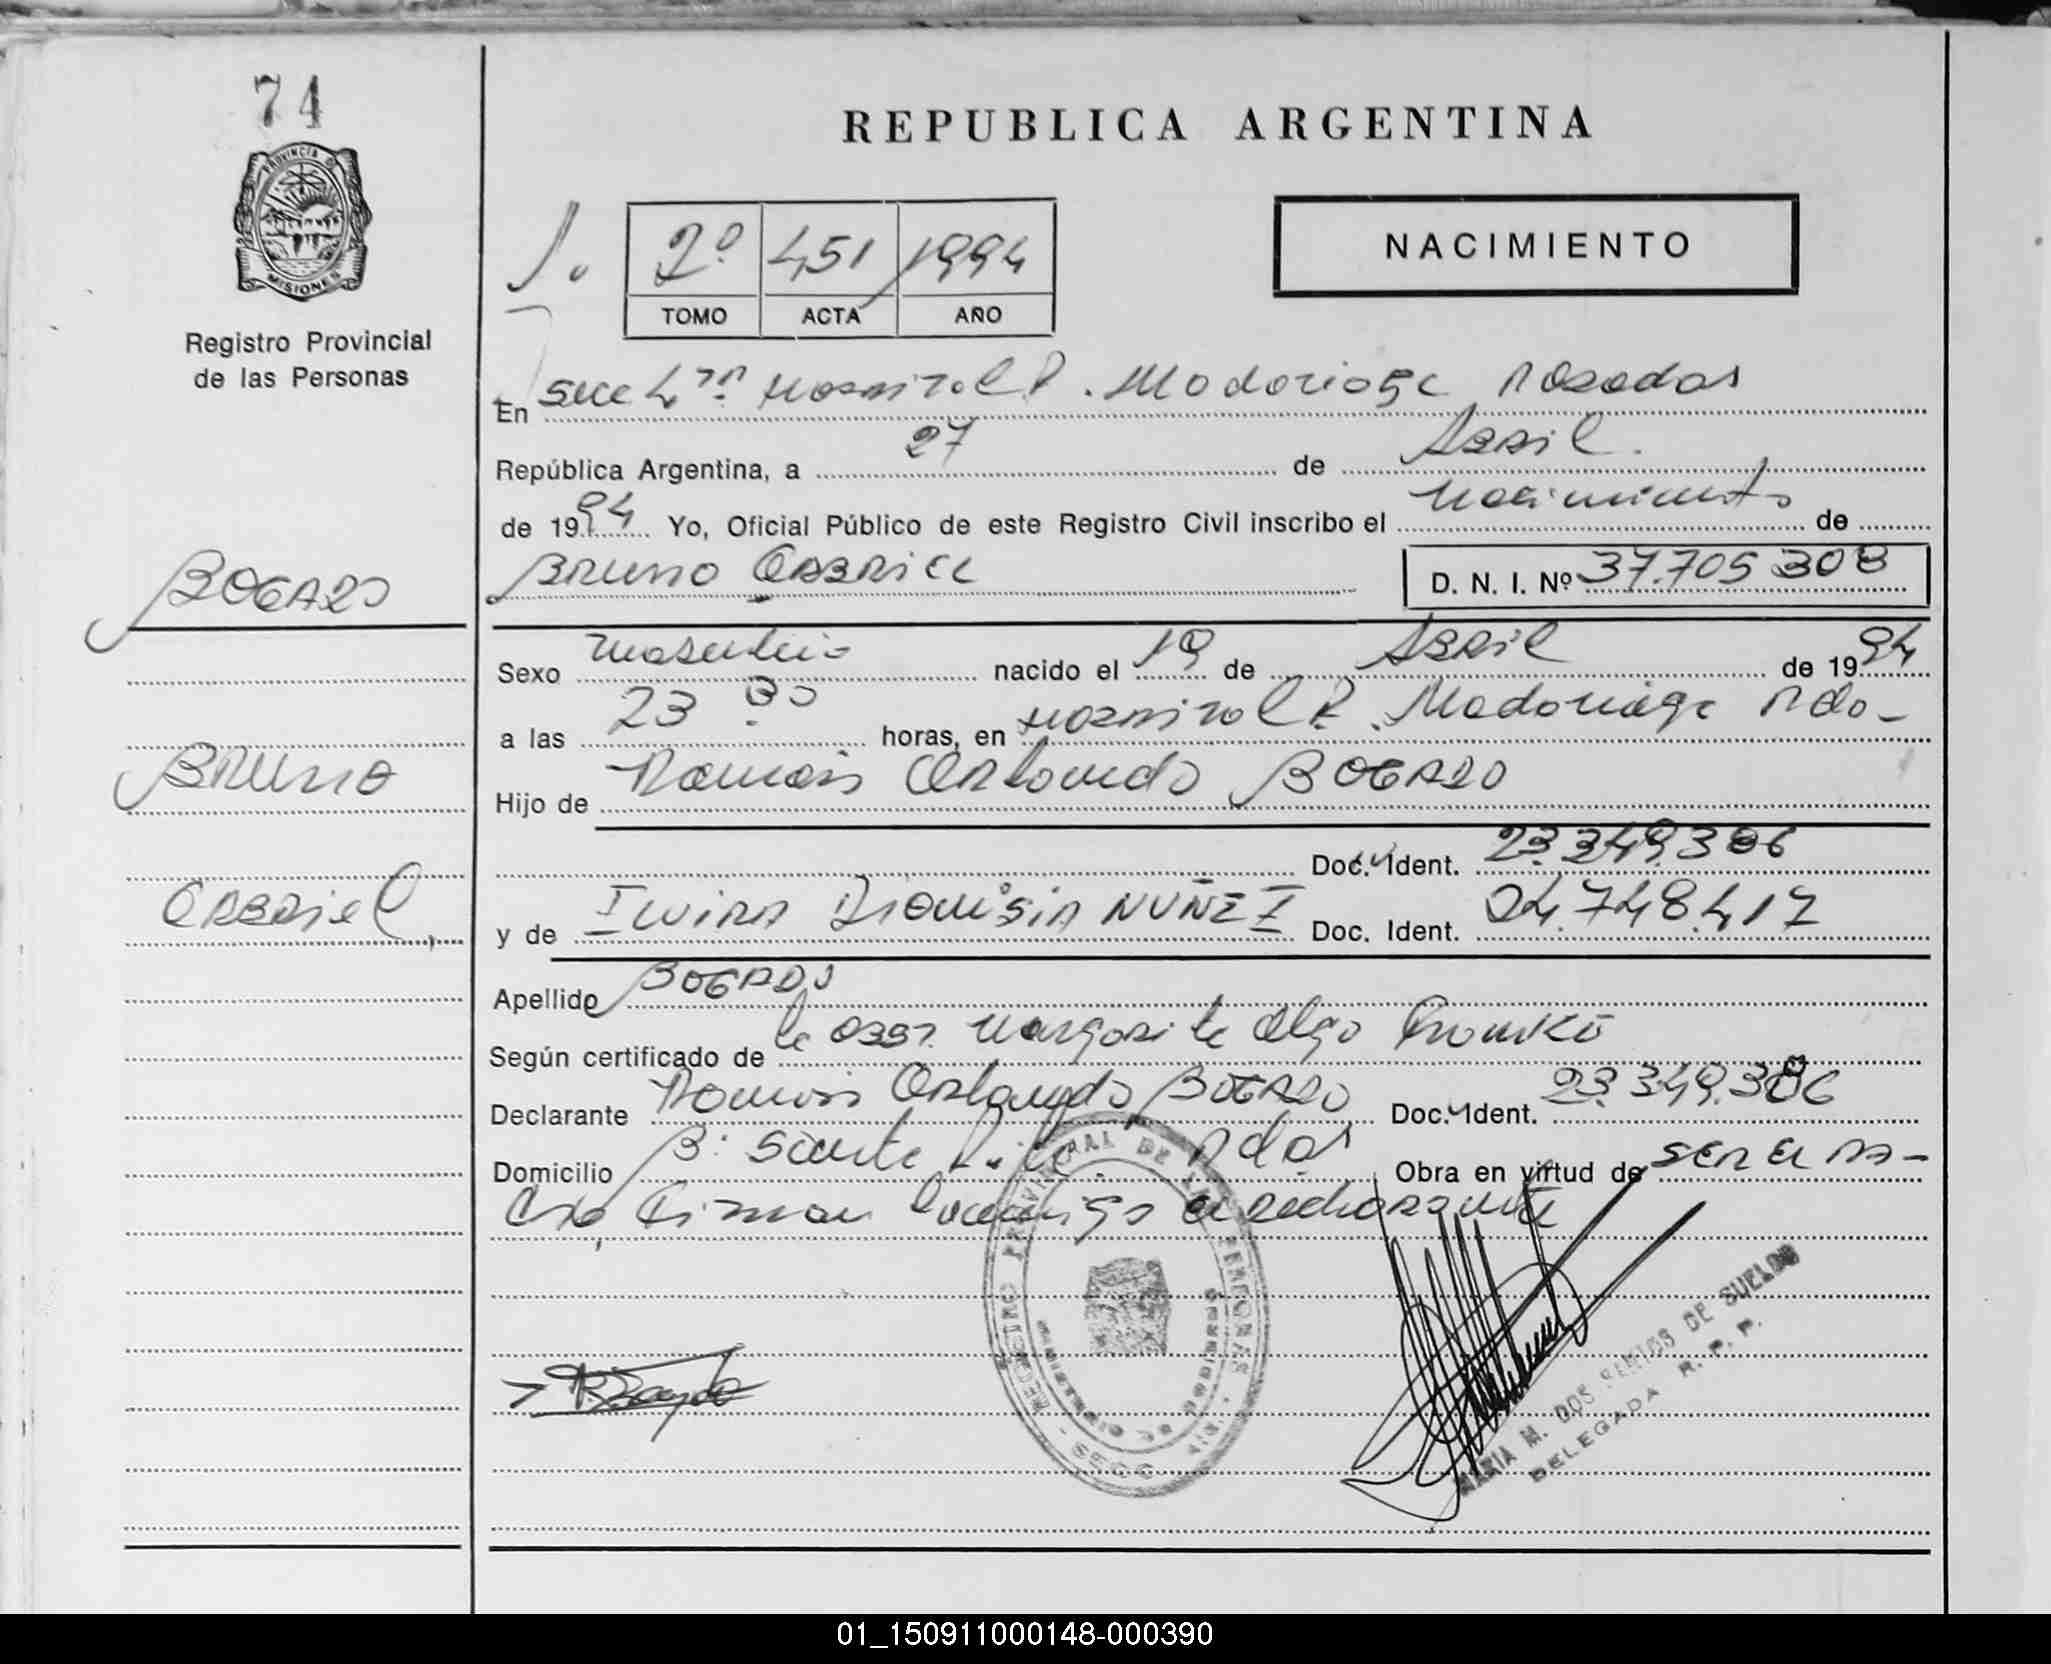 74
PROVINCIA D
MISIONES
Registro Provincial
de las Personas
REPUBLICA ARGENTINA
NACIMIENTO
2º 451 1994
TOMO ACTA AÑO
En Secc 4ta Hospital R. Madariaga Posadas
República Argentina, a 27 de Abril
de 1994 Yo, Oficial Público de este Registro Civil inscribo el nacimiento de
BRUNO GABRIEL D. N. I. Nº 37.705 308
BOGADO
Sexo masculino nacido el 19 de Abril de 1994
a las 23 30 horas, en Hospital R. Madariaga Pdas
BRUNO
Hijo de Ramón Orlando BOGADO
Doc. Ident. 23.349.386
GABRIEL
y de Dionisia NUÑEZ Doc. Ident. 24.748.417
Apellido BOGADO
Según certificado de la Obst. Margarita Olga
Declarante Ramón Orlando BOGADO Doc. Ident. 23.349.386
Domicilio B: Santa Rita Pdas Obra en virtud de ser el pa-
dre, Firman conmigo el declarante
REGISTRO PROVINCIAL DE LAS PERSONAS
MARIA M. DOS SANTOS DE SUELDO
DELEGADA R. P. P.
01_150911000148-000390